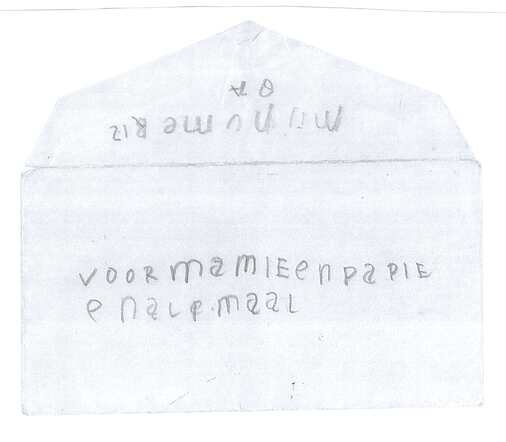 mijnumeR12
vooRmamIEenpapIE
enalemaal